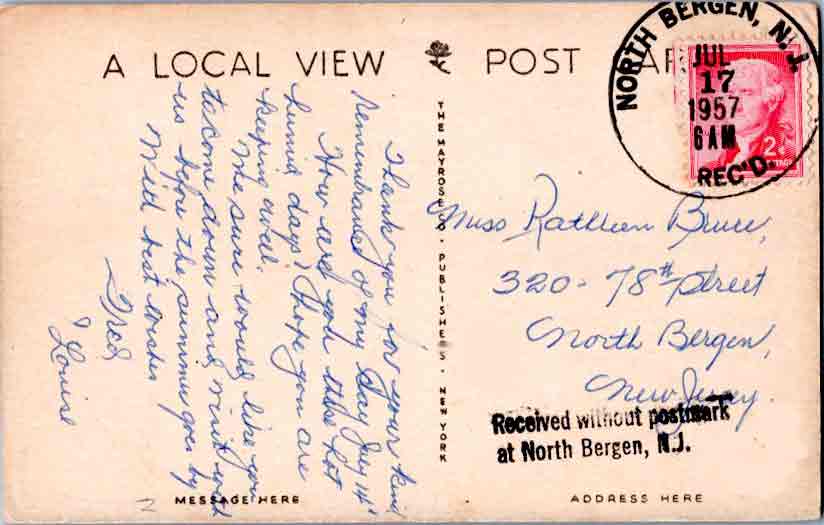 A LOCAL VIEW POST CAR
NORTH BERGEN, N.J.
JUL
17
1957
6 AM
REC'D.
2¢
POSTAGE
Thank you for your kind
remembrance of my day July 14th
How are you these hot
humid days? I hope you are
keeping well.
We sure would like you
to come down and visit with
us before the summer goes by
With best wishes
Fred
& Louise
THE MAYROSE CO. PUBLISHERS - NEW YORK
Miss Kathleen Bruce,
320 - 78th Street
North Bergen,
New Jersey.
Received without postmark
at North Bergen, N.J.
MESSAGE HERE
ADDRESS HERE